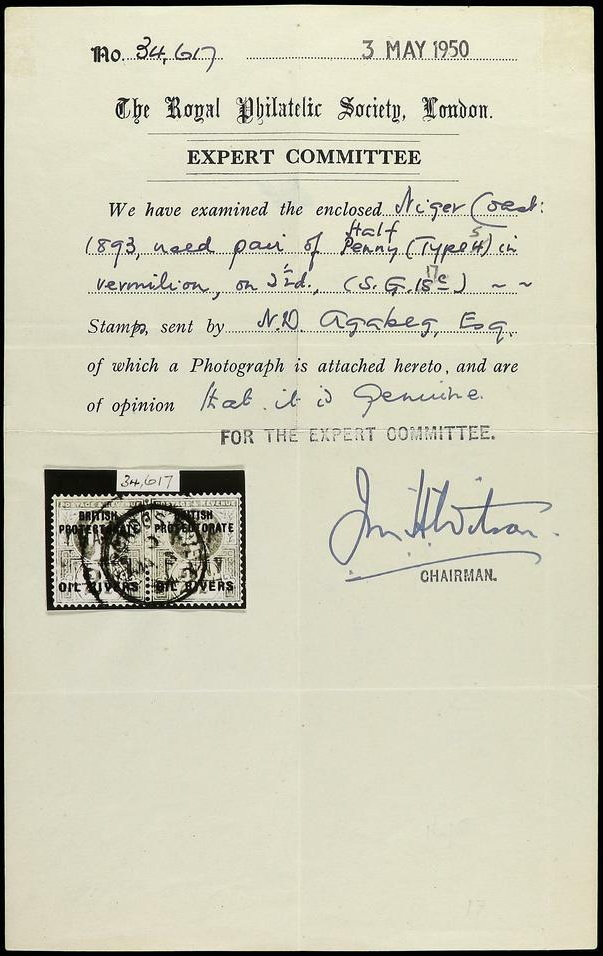 No. 34,617 3 MAY 1950
The Royal Philatelic Society, London.
EXPERT COMMITTEE
We have examined the enclosed Niger Coast:
1893, used pair of Half Penny (Type 4) 5 in
vermilion, on 2½d., (S.G. 18c) 17c ~ ~
Stamps, sent by N.D. Agabeg, Esq.
of which a Photograph is attached hereto, and are
of opinion that it is genuine.
FOR THE EXPERT COMMITTEE.
34,617
POSTAGE REVENUE
BRITISH BRITISH
PROTECTORATE PROTECTORATE
OIL RIVERS OIL RIVERS
Jn. H. Wilson.
CHAIRMAN.